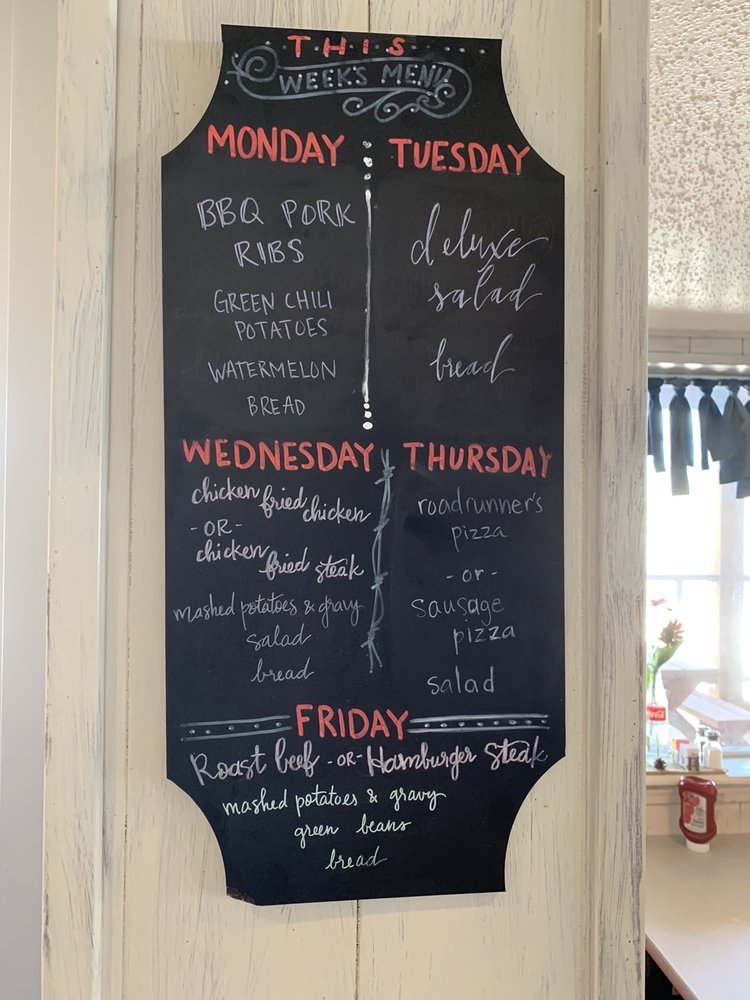 THIS
WEEK'S MENU
MONDAY
BBQ PORK
RIBS
GREEN CHILI
POTATOES
WATERMELON
BREAD
TUESDAY
deluxe
salad
bread
WEDNESDAY
chicken fried chicken
- OR -
chicken fried steak
mashed potatoes & gravy
salad
bread
THURSDAY
roadrunner's
pizza
- or -
sausage
pizza
salad
FRIDAY
Roast beef - OR - Hamburger Steak
mashed potatoes & gravy
green beans
bread